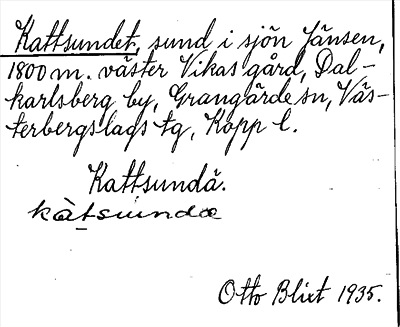 Kattsundet, sund i sjön Jänsen,
1800 m. väster Vikas gård, Dal-
karlsberg by, Grangärde sn, Väs-
terbergslags tg, Kopp l.
Kattsundä.
Otto Blixt 1935.